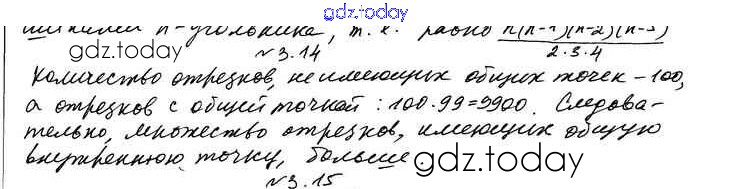 gdz.today
шинами n-угольника, т.к. равно n(n-1)(n-2)(n-3)
gdz.today №3.14 2·3·4
Количество отрезков, не имеющих общих точек – 100,
а отрезков с общей точкой: 100·99=9900. Следова-
тельно, множество отрезков, имеющих общую
внутреннюю точку, больше. gdz.today
№3.15